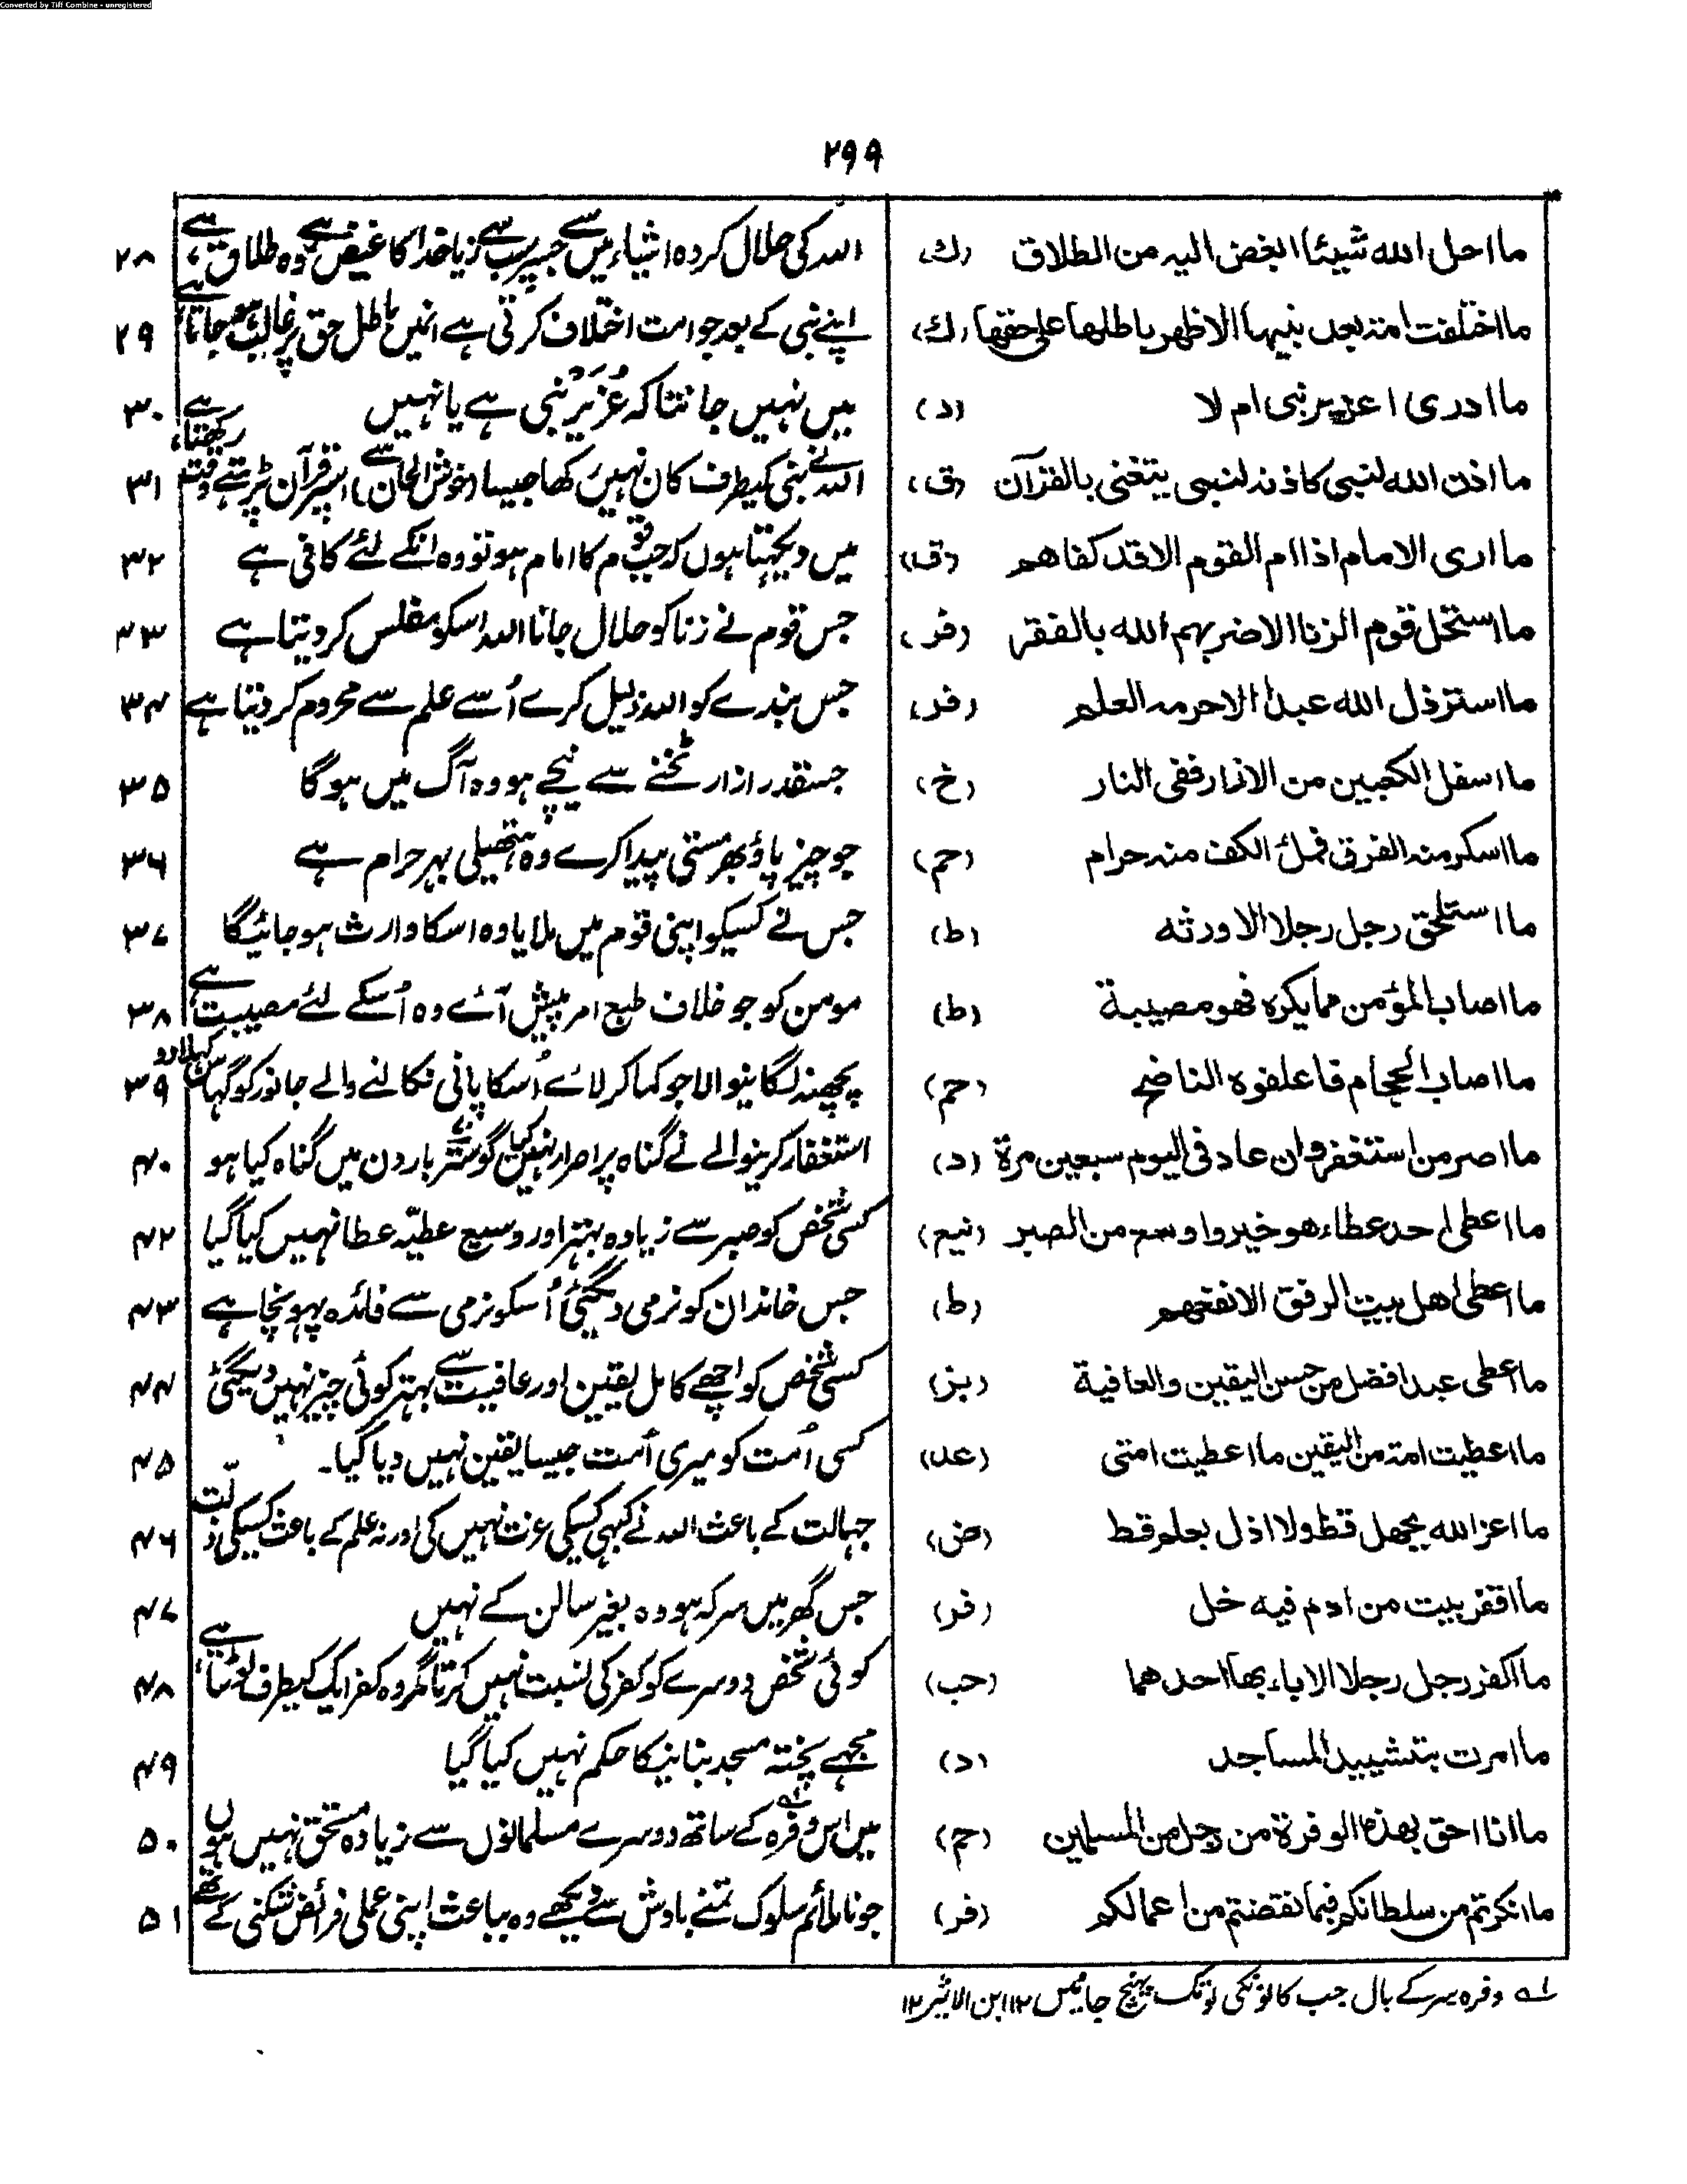 Converted by Tiff Combine - unregistered
۲۹۹
ما احل الله شیئا ابغض الیه من الطلاق (ك) اللہ کی حلال کردہ اشیاء میں سے جسپر سب سے زیادہ خدا کا غیض ہے وہ طلاق ہے ۲۸
ما اختلفت امة بعد نبیها الا ظهر باطلها علی حقها (ك) اپنے نبی کے بعد جو امت اختلاف کرتی ہے انمیں باطل حق پر غالب ہو جاتا ہے ۲۹
ما ادری اعزیر نبی ام لا (د) میں نہیں جانتا کہ عُزَیر نبی ہے یا نہیں ۳۰
ما اذن الله لنبی کاذنه لنبی یتغنی بالقرآن (ق) اللہ نے نبی کیطرف کان نہیں رکھا جیسا (خوش الحان) سے قرآن پڑہتے وقت رکھتا ہے ۳۱
ما اری الامام اذا ام القوم الا قد کفاهم (ق) میں دیکھتا ہوں کہ جب قوم کا امام ہو تو وہ انکے لئے کافی ہے ۳۲
ما استحل قوم الزنا الا ضربهم الله بالفقر (فر) جس قوم نے زنا کو حلال جانا اللہ اسکو مفلس کر دیتا ہے ۳۳
ما استرذل الله عبدا الا حرمه العلم (فر) جس بندے کو اللہ ذلیل کرے اُسے علم سے محروم کر دیتا ہے ۳۴
ما اسفل الکعبین من الازار ففی النار (خ) جسقدر ازار ٹخنے سے نیچے ہو وہ آگ میں ہوگا ۳۵
ما اسکر منه الفرق فملئ الکف منه حرام (حم) جو چیز پاؤ بھر مستی پیدا کرے وہ ہتھیلی بہر حرام ہے ۳۶
ما استلحق رجل رجلا الا ورثه (ط) جس نے کسیکو اپنی قوم میں ملایا وہ اسکا وارث ہو جائیگا ۳۷
ما اصاب المؤمن مما یکره فهو مصیبة (ط) مومن کو جو خلاف طبع امر پیش آئے وہ اُسکے لئے مصیبت ہے ۳۸
ما اصاب الحجام فاعلفوه الناضح (حم) پچھند لگانیوالا جو کما کر لائے اُسکا پانی نکالنے والے جانور کو گہاس کہلا دو ۳۹
ما اصر من استغفر وان عاد فی الیوم سبعین مرة (د) استغفار کرنیوالے نے گناہ پر اصرار نہیں کیا گو ستّر بار دن میں گناہ کیا ہو ۴۰
ما اعطی احد عطاء هو خیر واوسع من الصبر (نیع) کسی شخص کو صبر سے زیادہ بہتر اور وسیع عطیّہ عطا نہیں کیا گیا ۴۲
ما اعطی اهل بیت الرفق الا نفعهم (ط) جس خاندان کو نرمی دیگئی اُسکو نرمی سے فائدہ پہونچا ہے ۴۳
ما اعطی عبد افضل من حسن الیقین والعافیة (بز) کسی شخص کو اچھے کامل یقین اور عافیت سے بہتر کوئی چیز نہیں دیگئی ۴۴
ما اعطیت امة من الیقین ما اعطیت امتی (عد) کسی اُمت کو میری اُمت جیسا یقین نہیں دیا گیا۔ ۴۵
ما اعز الله بجهل قط ولا اذل بعلم قط (ض) جہالت کے باعث اللہ نے کبہی کسیکی عزت نہیں کی اور نہ علم کے باعث کسیکی ذلّت ۴۶
ما اقفر بیت من ادم فیه خل (فر) جس گھر میں سرکہ ہو وہ بغیر سالن کے نہیں ۴۷
ما اکفر رجل رجلا الا باء بها احدهما (حب) کوئی شخص دوسرے کو کفر کی نسبت نہیں کرتا مگر وہ کفر ایک کیطرف لوٹتا ہے ۴۸
ما امرت بتشیید المساجد (د) مجہے پختہ مسجد بنانیکا حکم نہیں کیا گیا ۴۹
ما انا احق بهذه الوفرة من رجل من المسلمین (حم) میں اس وفرہ کے ساتھ دوسرے مسلمانوں سے زیادہ مستحق نہیں ہوں ۵۰
ما انکرتم من سلطانکم فبما نقضتم من اعمالکم (فر) جو نا ملائم سلوک تمنے بادشہ سے دیکھے وہ بباعث اپنی عملی فرائض شکنی کے تھے ۵۱
؎۱ وفرہ سر کے بال جب کانونکی لو تک پہنچ جائیں ۱۲ ابن الاثیر ۱۲